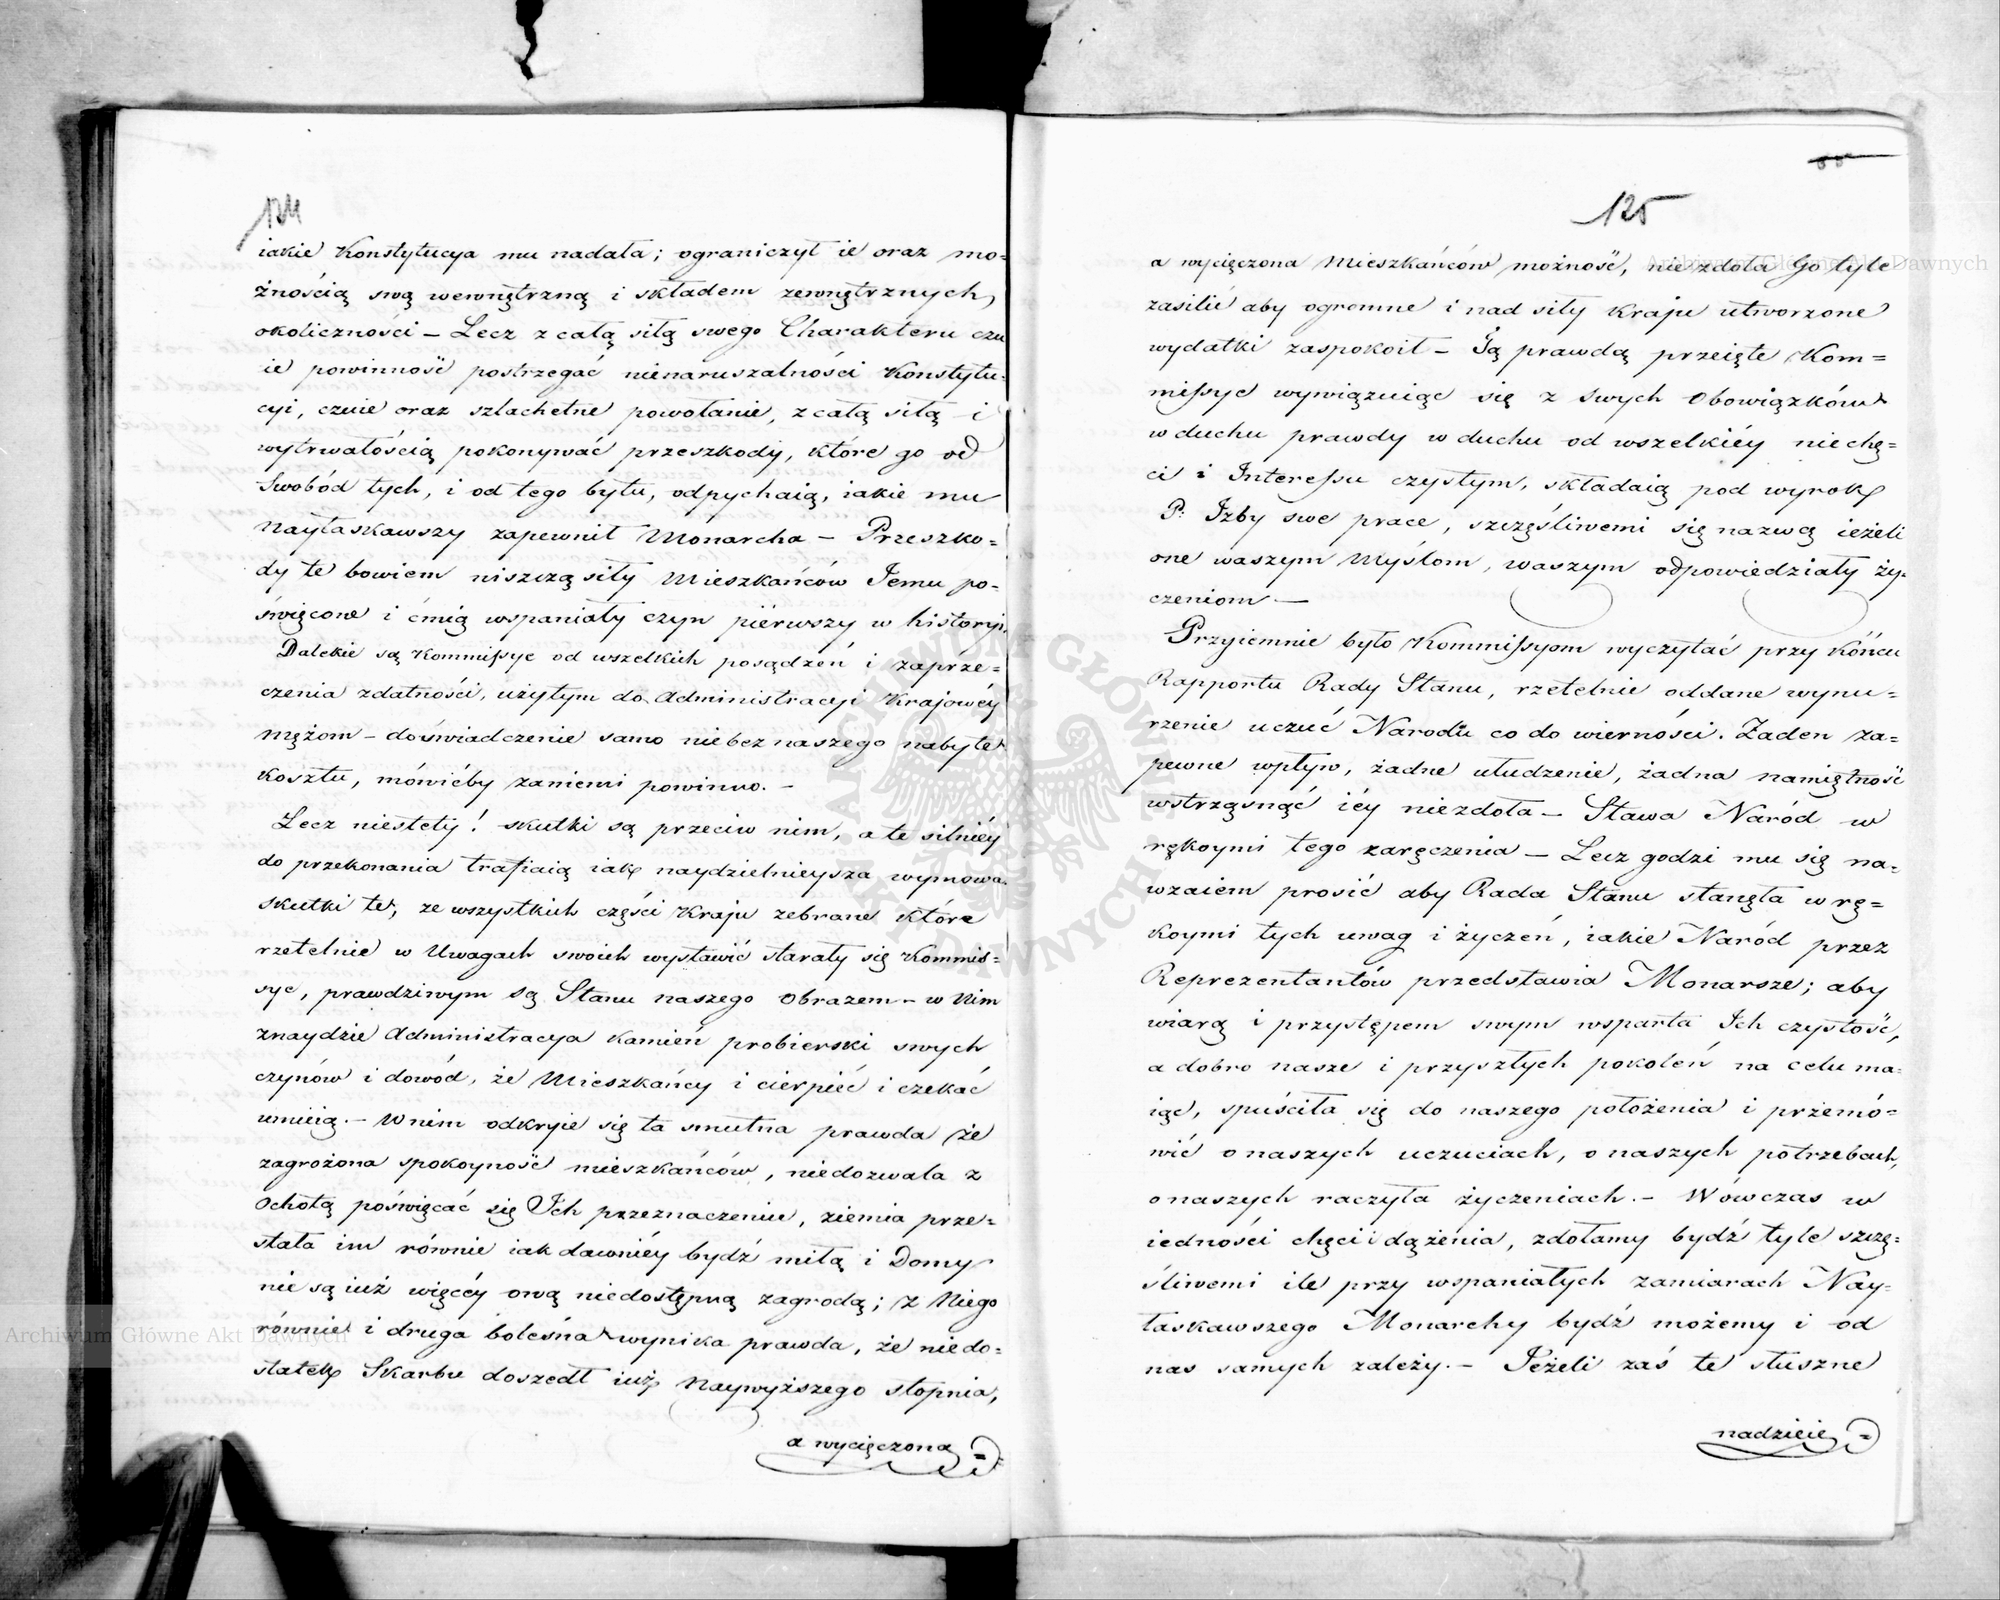 124
iakie Konstytucya mu nadała; ograniczył ie oraz mo=
żnością swą wewnętrzną i składem zewnętrznych
okoliczności – Lecz z całą siłą swego Charakteru czu
ie powinność postrzegać nienaruszalności Konstytu-
cyi, czuie oraz szlachetne powołanie, z całą siłą i
wytrwałością pokonywać przeszkody, które go od
Swobód tych, i od tego bytu, odpychaią, iakie mu
Nayłaskawszy zapewnił Monarcha – Przeszko=
dy te bowiem niszczą siły Mieszkańców Jemu po=
święcone i ćmią wspaniały czyn piérwszy w historyi.
Dalekie są Kommissye od wszelkich posądzeń i zaprze=
czenia zdatności, użytym do Administracyi Krajowéy
mężom – doświadczenie samo niebez naszego nabyte
kosztu, mówićby zaniemi powinno. –
Lecz niestety! skutki są przeciw nim, a te silniéy
do przekonania trafiaią iak naydzielnieysza wymowa.
skutki te, ze wszystkich części Kraju zebrane które
rzetelnie w Uwagach swoich wystawić starały się Kommis=
sye, prawdziwym są Stanu naszego obrazem – w Nim
znaydzie Administracya Kamień probierski swych
czynów i dowód, że Mieszkańcy i cierpieć i czekać
umieią. – W nim odkryie się ta smutna prawda że
zagrożona spokoyność mieszkańców, niedozwala z
Ochotą poświęcać się Ich przeznaczeniu, ziemia prze=
stała im równie iak dawniéy bydź miłą i Domy
nie są iuż więcéy ową niedostępną zagrodą; z Niego
równie i druga bolésna wynika prawda, że niedo=
statek Skarbu doszedł iuż Naywyższego stopnia,
a wycięczona =
125
a wycięczona Mieszkańców możność, niezdoła Go tyle
zasilić aby ogromne i nad siły Kraju utworzone
wydatki zaspokoił – Tą prawdą przeięte Kom=
missye wywiązuiąc się z swych Obowiązków
w duchu prawdy w duchu od wszelkiéy niechę=
ci i Interessu czystym, składaią pod wyrok
P: Izby swe prace, szczęśliwemi się nazwą ieżeli
one waszym Myślom, waszym odpowiedziały ży-
czeniom –
Przyiemnie było Kommissyom wyczytać przy Końcu
Rapportu Rady Stanu, rzetelnie oddane wynu=
rzenie uczuć Narodu co do wierności. Żaden za=
pewne wpływ, żadne ułudzenie, żadna namiętność
wstrząsnąć iéy niezdoła – Stawa Naród w
rękoymi tego zaręczenia – Lecz godzi mu się na=
wzaiem prosić aby Rada Stanu stanęła w rę=
koymi tych uwag i życzeń, iakie Naród przez
Reprezentantów przedstawia Monarsze; aby
wiarą i przystępem swym wsparła Ich czystość,
a dobro nasze i przyszłych pokoleń na celu ma=
iąc, spuściła się do naszego położenia i przemó=
wić o naszych uczuciach, o naszych potrzebach,
o naszych raczyła życzeniach. – Wówczas w
iedności chęci i dążenia, zdołamy bydź tyle szczę=
śliwemi ile przy wspaniałych zamiarach Nay-
łaskawszego Monarchy bydź możemy i od
nas samych zależy. – Jeżeli zaś te słuszne
nadzieie =
Archiwum Główne Akt Dawnych
Archiwum Główne Akt Dawnych